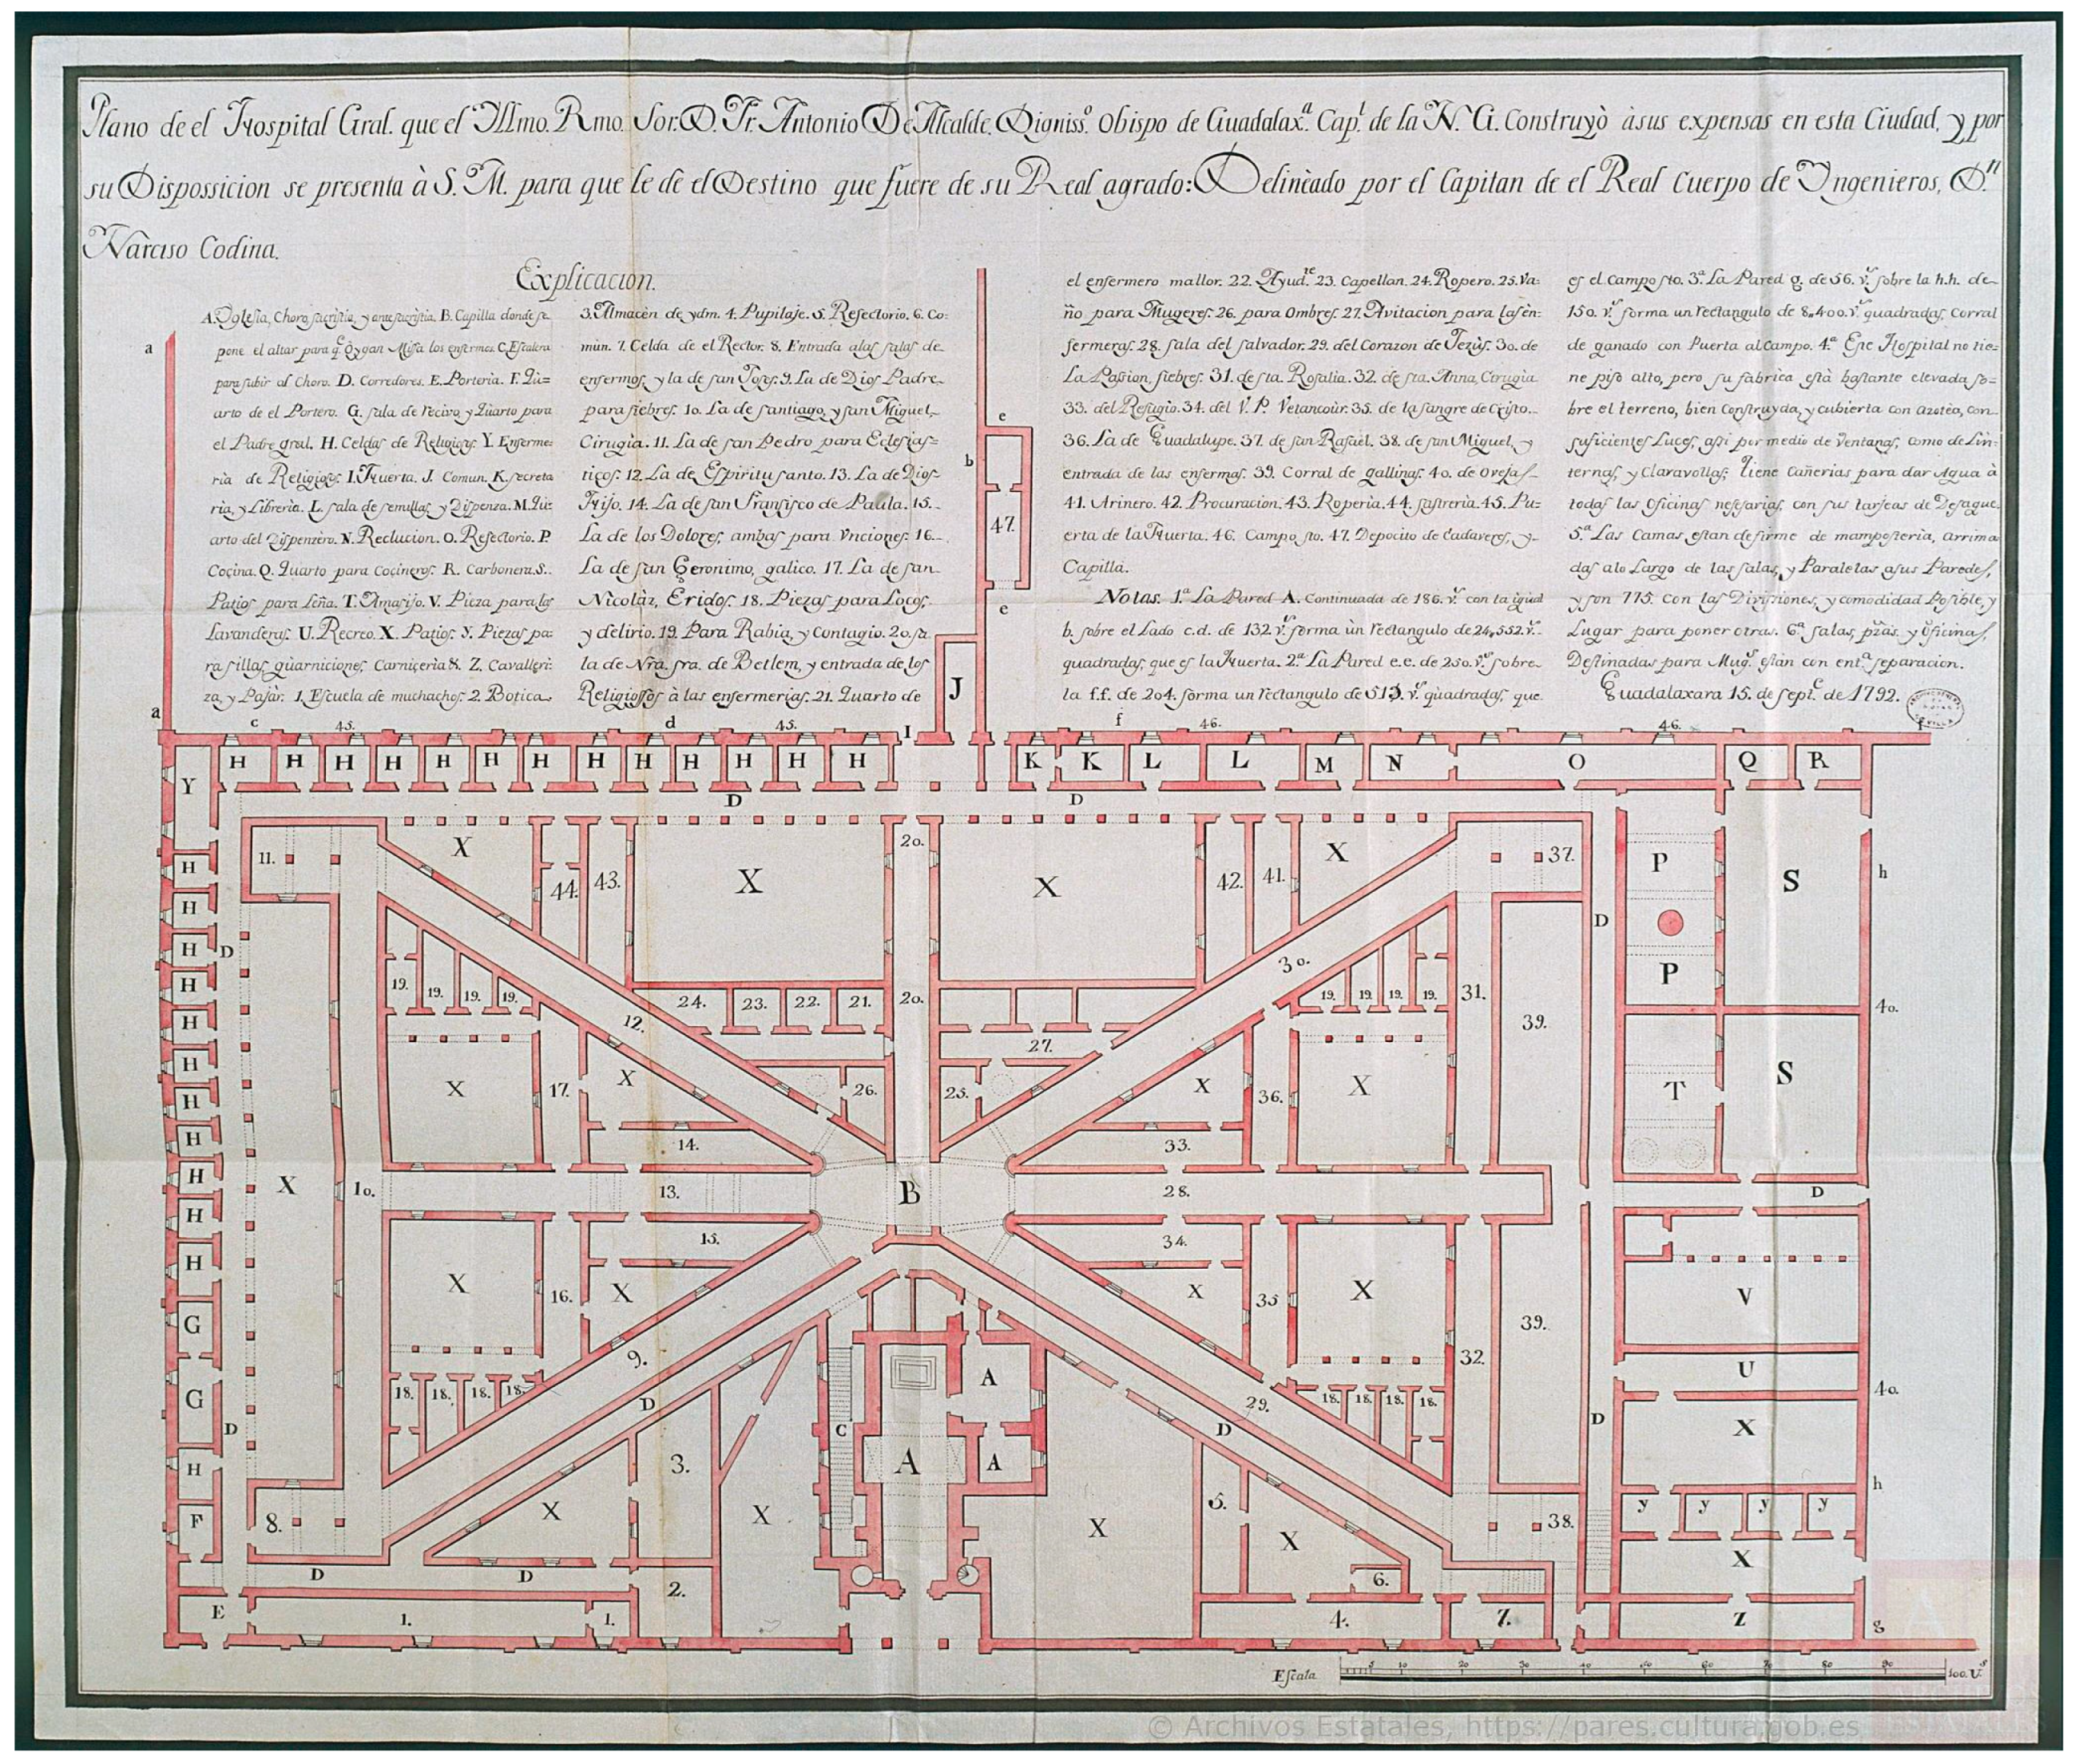 Plano de el Hospital Gral. que el Illmo. Rmo. Sor. D. Fr. Antonio De Alcalde, Digniss.º Obispo de Guadalax.ª Cap.l de la N. G. Construyò àsus expensas en esta Ciudad, y por
su Dispossicion se presenta à S. M. para que le dè el Destino que fuere de su Real agrado: Delinèado por el Capitan de el Real Cuerpo de Yngenieros, D.n
Narciso Codina.
Explicacion.
A. Yglesia, Choro, sacristia, y antesacristia. B. Capilla donde se
pone el altar para q.e oygan Missa los enfermos. C. Escalera
para subir al Choro. D. Corredores. E. Porteria. F. Qù=
arto de el Portero. G. sala de recivo, y Qùarto para
el Padre gral. H. Celdas de Religiosos. Y. Enferme=
ria de Religiosos. I. Huerta. J. Comun. K. secreta
ria, y Libreria. L. sala de semillas, y Dispenza. M. Qù=
arto del Dispenzero. N. Reclucion. O. Refectorio. P.
Coçina. Q. Quarto para Coçineros. R. Carbonera. S..
Patios para Leña. T. Amasijo. V. Pieza para las
Lavanderas. U. Recreo. X. Patios. Y. Piezas pa=
ra sillas, guarniciones, Carniçeria &. Z. Cavalleri=
za, y Pajàr. 1. Escuela de muchachos. 2. Botica
3. Almacèn de ydm. 4. Pupilaje. 5. Refectorio. 6. Co=
mùn. 7. Celda de el Rector. 8. Entrada alas salas de
enfermos, y la de san Josef. 9. La de Dios Padre
para fiebres. 10. La de santiago, y san Miguel,
Cirugia. 11. La de san Pedro para Eclesias=
ticos. 12. La de Espiritu santo. 13. La de Dios
Hijo. 14. La de san Fransisco de Paula. 15.
La de los Dolores, ambas para Vnciones. 16.
La de san Geronimo, galico. 17. La de san
Nicolàz, Eridos. 18. Piezas para Locos,
y delirio. 19. Para Rabia, y Contagio. 20. sa
la de Nra. sra. de Betlem, y entrada de los
Religiossos à las enfermerias. 21. Quarto de
el enfermero mallor. 22. Ayud.te 23. Capellan. 24. Ropero. 25. Va=
ño para Mugeres. 26. para Ombres. 27. Avitacion para las en=
fermeras. 28. sala del salvador. 29. del Corazon de Jezùs. 30. de
La Passion, fiebres. 31. de sta. Rosalia. 32. de sta. Anna, Cirugia
33. del Refugio. 34. del V. P. Vetancoùr. 35. de la sangre de Cristo.
36. La de Guadalupe. 37. de san Rafael. 38. de san Miguel, y
entrada de las enfermas. 39. Corral de gallinas. 40. de Ovejas
41. Arinero. 42. Procuracion. 43. Roperia. 44. sastreria. 45. Pu=
erta de la Huerta. 46. Campo sto. 47. Depocito de Cadaveres, y
Capilla.
Notas. 1.ª La Pared A. Continuada de 186. v.s con la igùal
b. sobre el Lado c.d. de 132 v.s forma ùn rectangulo de 24,,552. v.s
quadradas, que es la Huerta. 2.ª La Pared e.e. de 250. v.s sobre
la f.f. de 204. forma un rectangulo de 513. v.s qùadradas, que
es el Campo sto. 3.ª La Pared g. de 56. v.s sobre la h.h. de
150. v.s forma un rectangulo de 8,,400. v.s quadradas, Corral
de ganado con Puerta al Campo. 4.ª Este Hospital no tie=
ne piso alto, pero su fabrica està bastante elevada so=
bre el terreno, bien Construyda, y cubierta con azotèa, con
suficientes Luces, assi por medio de Ventanas, como de Lin=
ternas, y Claravollas; tiene Cañerias para dar Agua à
todas las Oficinas nessesarias, con sus tarjeas de Desague.
5.ª Las Camas, estan de firme de mamposteria, arrima
das alo Largo de las salas, y Paraletas asus Paredes,
y son 775. Con las Divissiones, y comodidad Posible, y
Lugar para poner otras. 6.ª salas, pzâs. y Oficinas,
Destinadas para Mug.s estàn con ent.ª separacion.
Guadalaxara 15. de sept.e de 1792.
a b e 47. e J
a c 45. d 45. I f 46. 46. f
H H H H H H H H H H H H H K K L L M N O Q R
Y D D
11. X 44. 43. X 20. X 42. 41. X 37. P S h
H H H H H H H H H H H D
19. 19. 19. 19. 12. 24. 23. 22. 21. 20. 30. 19. 19. 19. 19. 31. 39. D P 40.
X 17. X 26. 25. 27. X 36. X T S
14. 33.
X 10. 13. B 28. D
15. 34.
X 16. X X 35 X 39. V
9. 32. U 40.
18. 18. 18. 18. D 29. D 18. 18. 18. 18. D X
G G H D 3. C A A A 5. h
F 8. X X X X 38. y y y y
D D 2. 6. X
E 1. 1. 4. 7. Z g
Escala 5 10 20 30 40 50 60 70 80 90 100. V.s
© Archivos Estatales, https://pares.cultura.gob.es